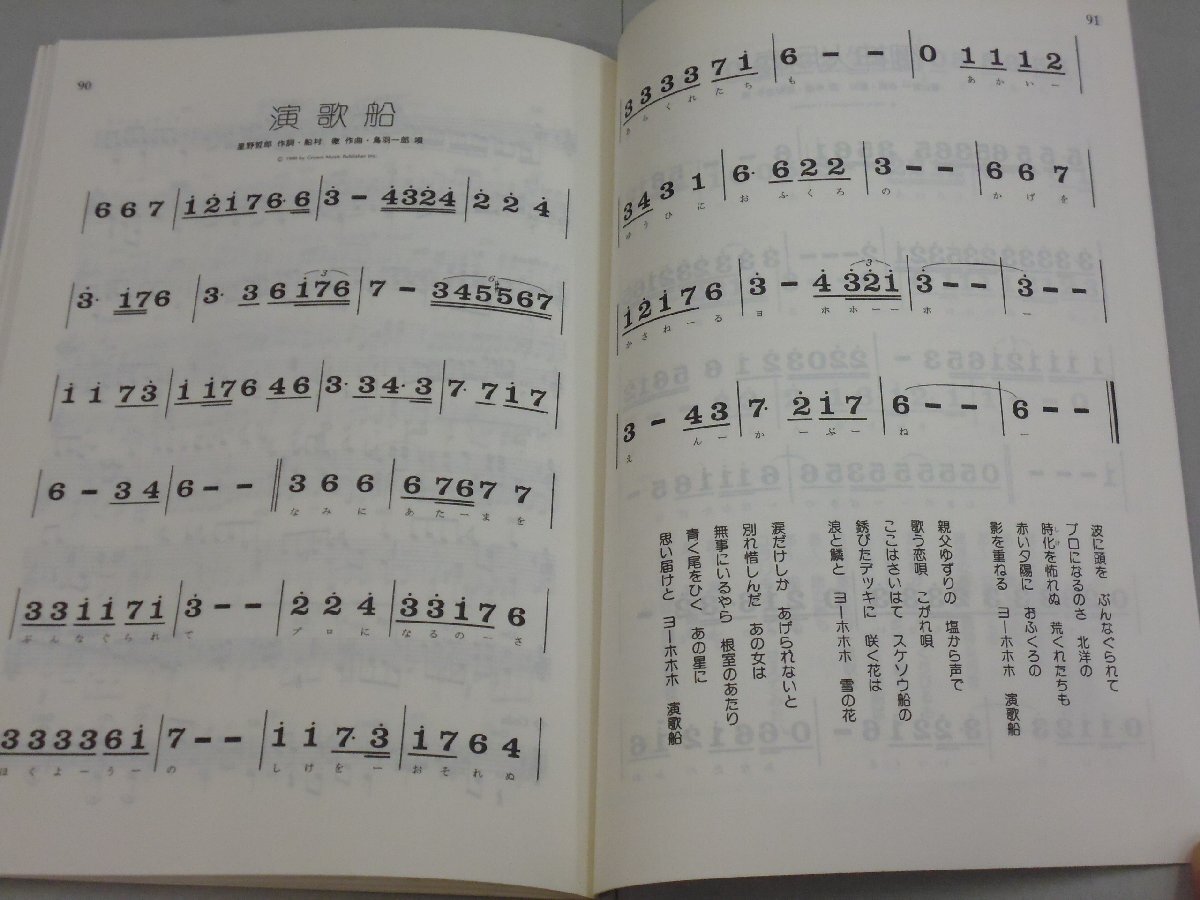 90
演歌船
星野哲郎 作詞・船村 徹 作曲・鳥羽一郎 唄
6 6 7 | i̇ 2̇ i̇ 7 6· 6 | 3̇ − 4̇ 3̇ 2̇ 4̇ | 2̇ 2̇ 4̇
3̇· i̇ 7 6 | 3· 3 6 i̇ 7 6 | 7 − 3 4 5 5 5 6 7
i̇ i̇ 7 3̇ | i̇ i̇ 7 6 4 6 | 3· 3 4· 3 | 7· 7 i̇ 7
6 − 3 4 | 6 − − || 3 6 6 | 6 7 6 7 7
なみに あたーまを
3 3 i̇ i̇ 7 i̇ | 3̇ − − | 2̇ 2̇ 4̇ | 3̇ 3̇ i̇ 7 6
ぶんなぐられ て プロに なるのーさ
3 3 3 3 6 i̇ | 7 − − | i̇ i̇ 7· 3̇ | i̇ 7 6 4
ほくよーうー の しけをー おそれぬ
91
3 3 3 3 7 i̇ | 6 − − | 0 1 1 1 2
あらくれたち も あかいー
3 4 3 1 | 6· 6 2 2 | 3 − − | 6 6 7
ゆうひに おふくろ の かげを
i̇ 2̇ i̇ 7 6 | 3̇ − 4̇ 3̇ 2̇ i̇ | 3̇ − − | 3̇ − −
かさねーる ヨ ホホーー ホ ー
3 − 4 3 | 7· 2̇ i̇ 7 | 6 − − | 6 − −
え んー か ーぶー ね ー
波に頭を ぶんなぐられて
プロになるのさ 北洋の
時化を怖れぬ 荒くれたちも
しけ
赤い夕陽に おふくろの
影を重ねる ヨーホホホ 演歌船
親父ゆずりの 塩から声で
歌う恋唄 こがれ唄
ここはさいはて スケソウ船の
錆びたデッキに 咲く花は
浪と鱗と ヨーホホホ 雪の花
涙だけしか あげられないと
別れ惜しんだ あの女は
無事にいるやら 根室のあたり
青く尾をひく あの星に
思い届けと ヨーホホホ 演歌船